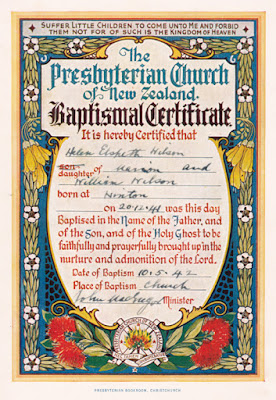 SUFFER LITTLE CHILDREN TO COME UNTO ME AND FORBID
THEM NOT FOR OF SUCH IS THE KINGDOM OF HEAVEN
The
Presbyterian Church
of New Zealand.
Baptismal Certificate.
It is hereby Certified that
Helen Elspeth Wilson
son
daughter of Marion and
William Wilson
born at Winton
on 20.12.41 was this day
Baptised in the Name of the Father, and
of the Son, and of the Holy Ghost to be
faithfully and prayerfully brought up in the
nurture and admonition of the Lord.
Date of Baptism 10.5.42
Place of Baptism Church
John Minister
PRESBYTERIAN BOOKROOM, CHRISTCHURCH